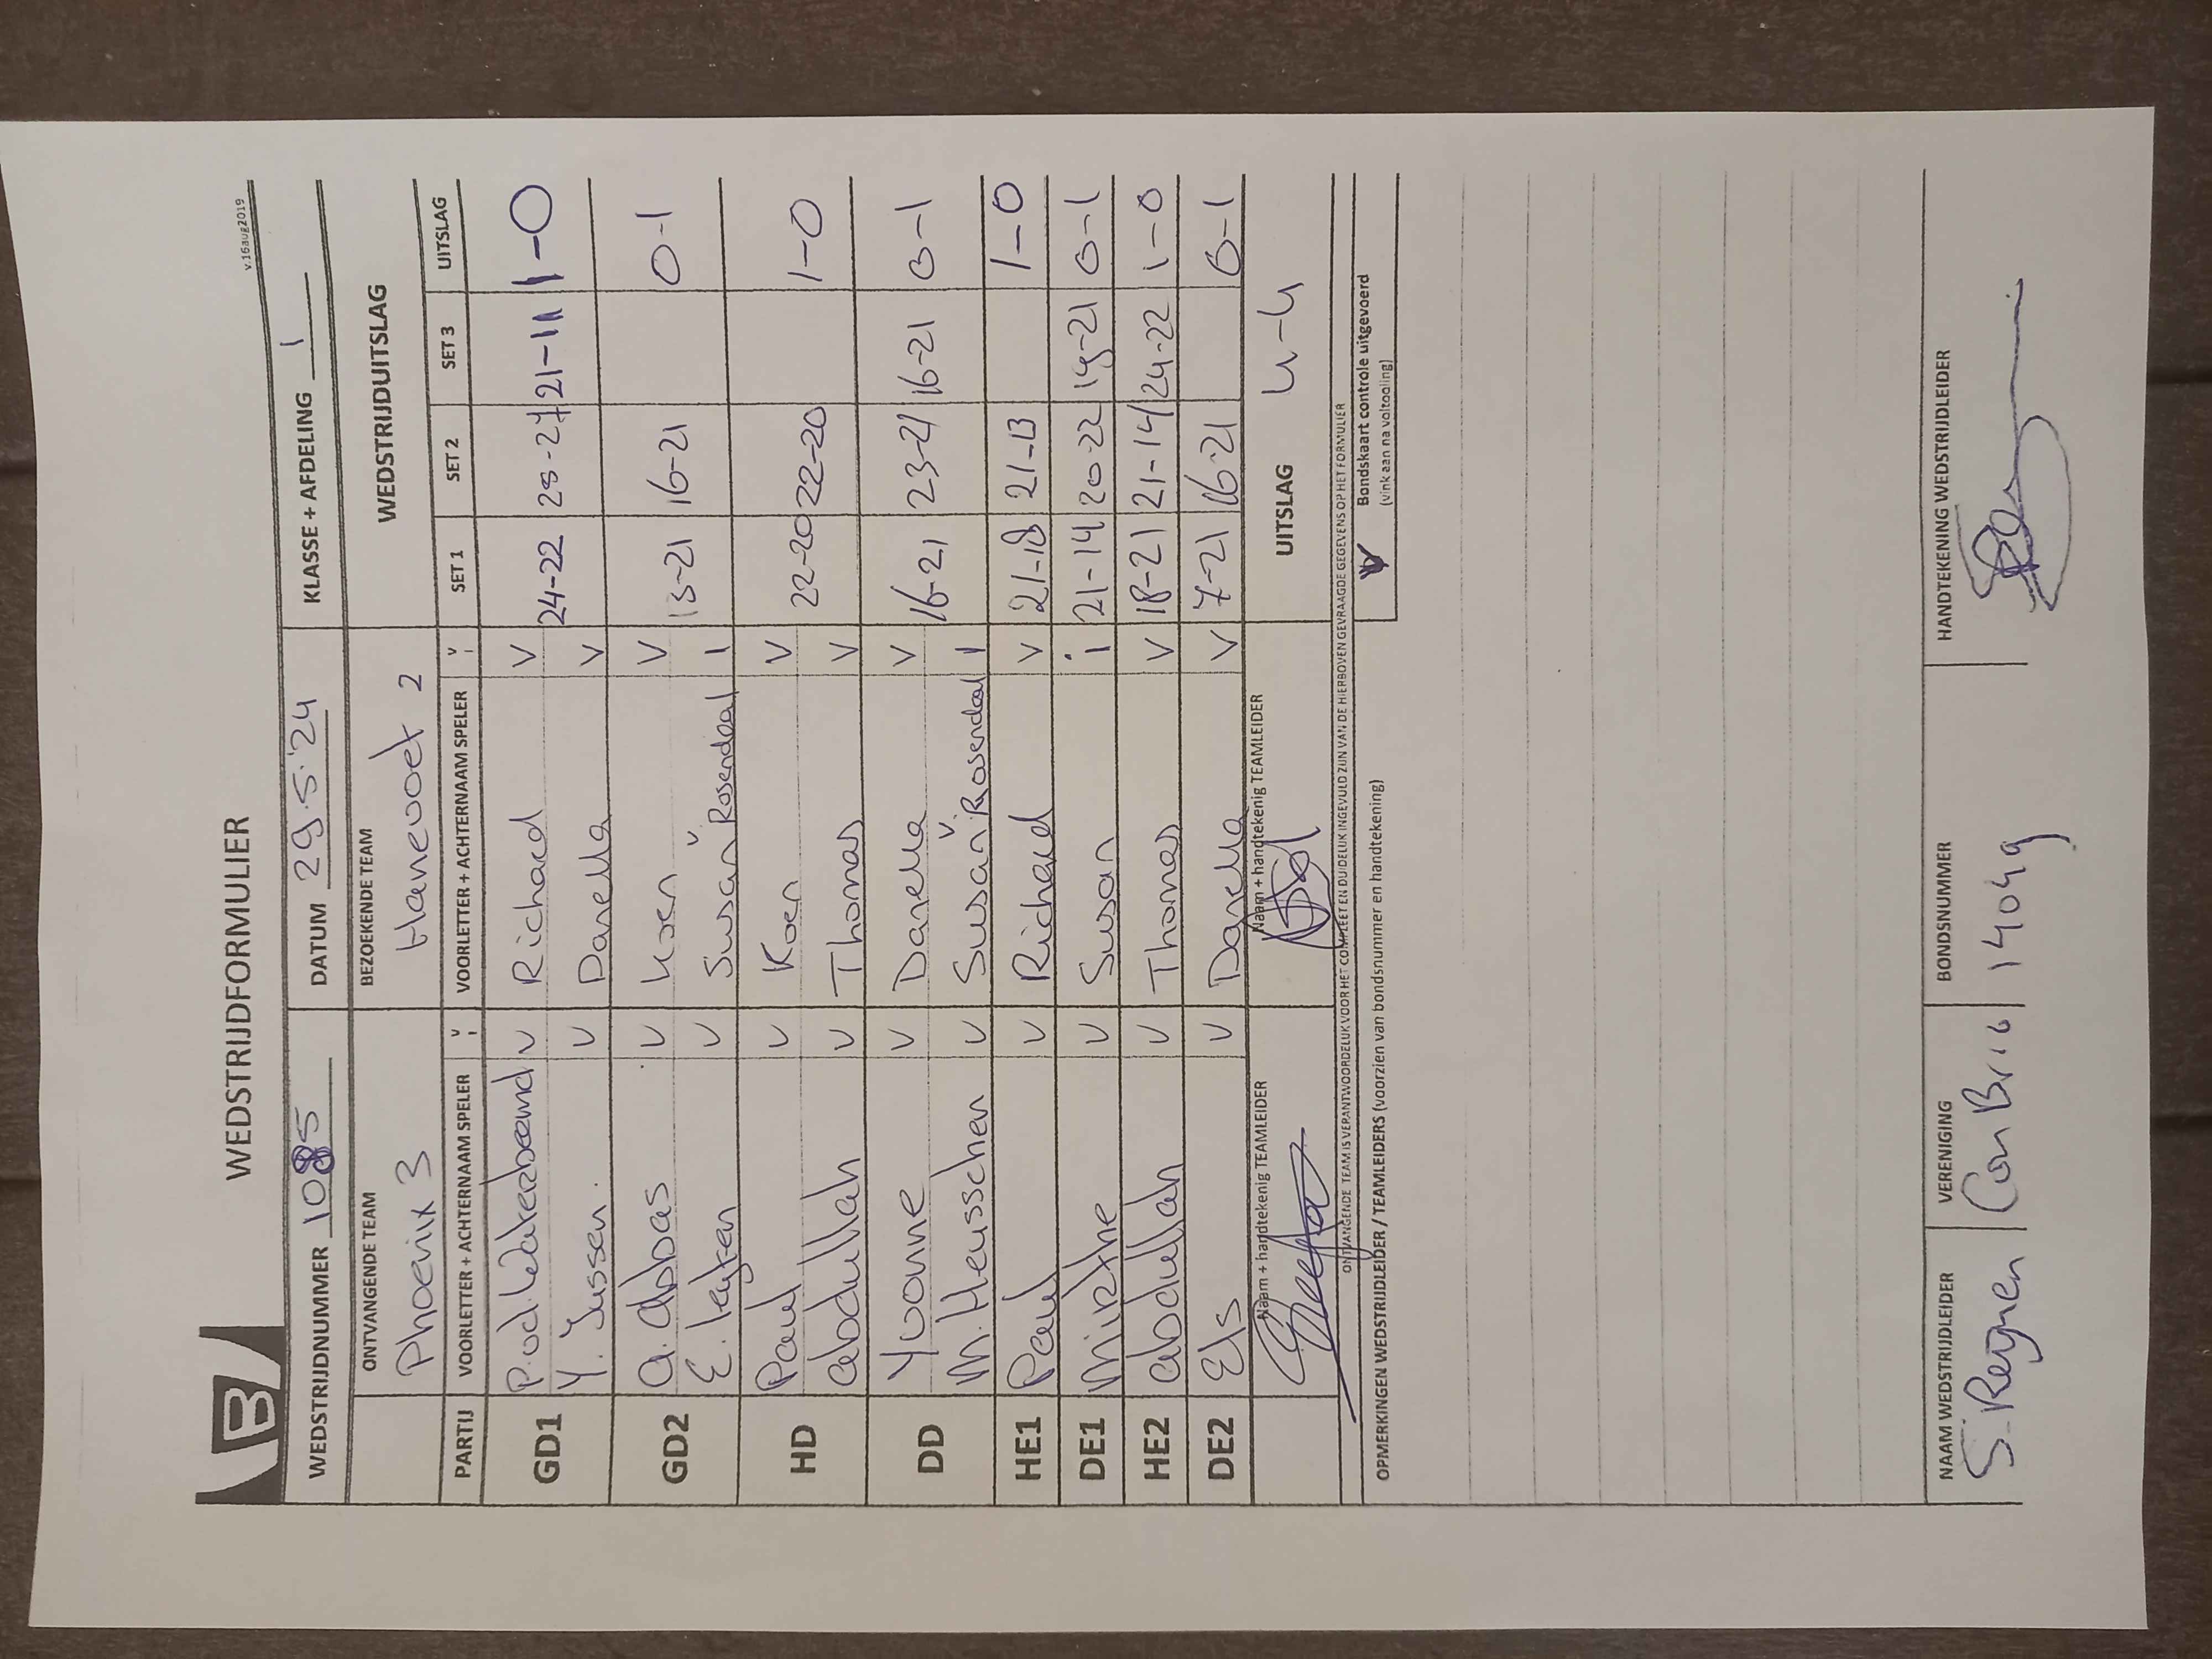 B
WEDSTRIJDFORMULIER
v.16aug2019
WEDSTRIJDNUMMER 1085 DATUM 29.5.'24 KLASSE + AFDELING 1
ONTVANGENDE TEAM BEZOEKENDE TEAM WEDSTRIJDUITSLAG
Phoenix 3 Hanevoet 2
PARTIJ VOORLETTER + ACHTERNAAM SPELER V/i VOORLETTER + ACHTERNAAM SPELER V/i SET 1 SET 2 SET 3 UITSLAG
GD1 P. vd Waterbeemd V Richard V 24-22 25-27 21-11 1-0
Y. Jussen. V Danella V
GD2 a. abbas V Koen V 13-21 16-21 0-1
E. V Susan v. Rosendaal I
HD Paul V Koen V 22-20 22-20 1-0
abdullah V Thomas V
DD Yvonne V Danella V 16-21 23-21 16-21 0-1
M. Heusschen V Susan v. Rosendaal I
HE1 Paul V Richard V 21-18 21-13 1-0
DE1 Mirthe V Susan i 21-14 20-22 19-21 0-1
HE2 abdullah V Thomas V 18-21 21-14 24-22 1-0
DE2 Els V Danella V 7-21 16-21 0-1
Naam + handtekenig TEAMLEIDER Naam + handtekenig TEAMLEIDER UITSLAG 4-4
ONTVANGENDE TEAM IS VERANTWOORDELIJK VOOR HET COMPLEET EN DUIDELIJK INGEVULD ZIJN VAN DE HIERBOVEN GEVRAAGDE GEGEVENS OP HET FORMULIER
V Bondskaart controle uitgevoerd
(vink aan na voltooiing)
OPMERKINGEN WEDSTRIJDLEIDER / TEAMLEIDERS (voorzien van bondsnummer en handtekening)
NAAM WEDSTRIJDLEIDER VERENIGING BONDSNUMMER HANDTEKENING WEDSTRIJDLEIDER
S. Reijnen Con Brio 14049